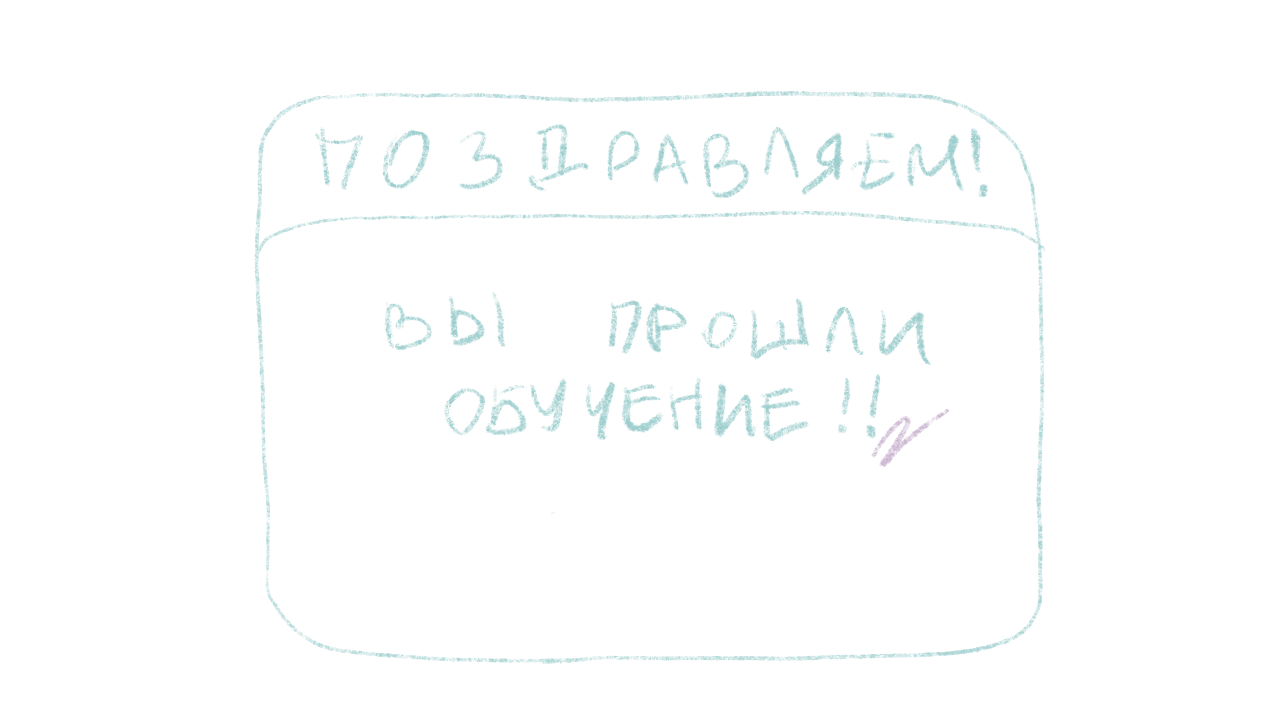 ПОЗДРАВЛЯЕМ!
ВЫ ПРОШЛИ
ОБУЧЕНИЕ!!